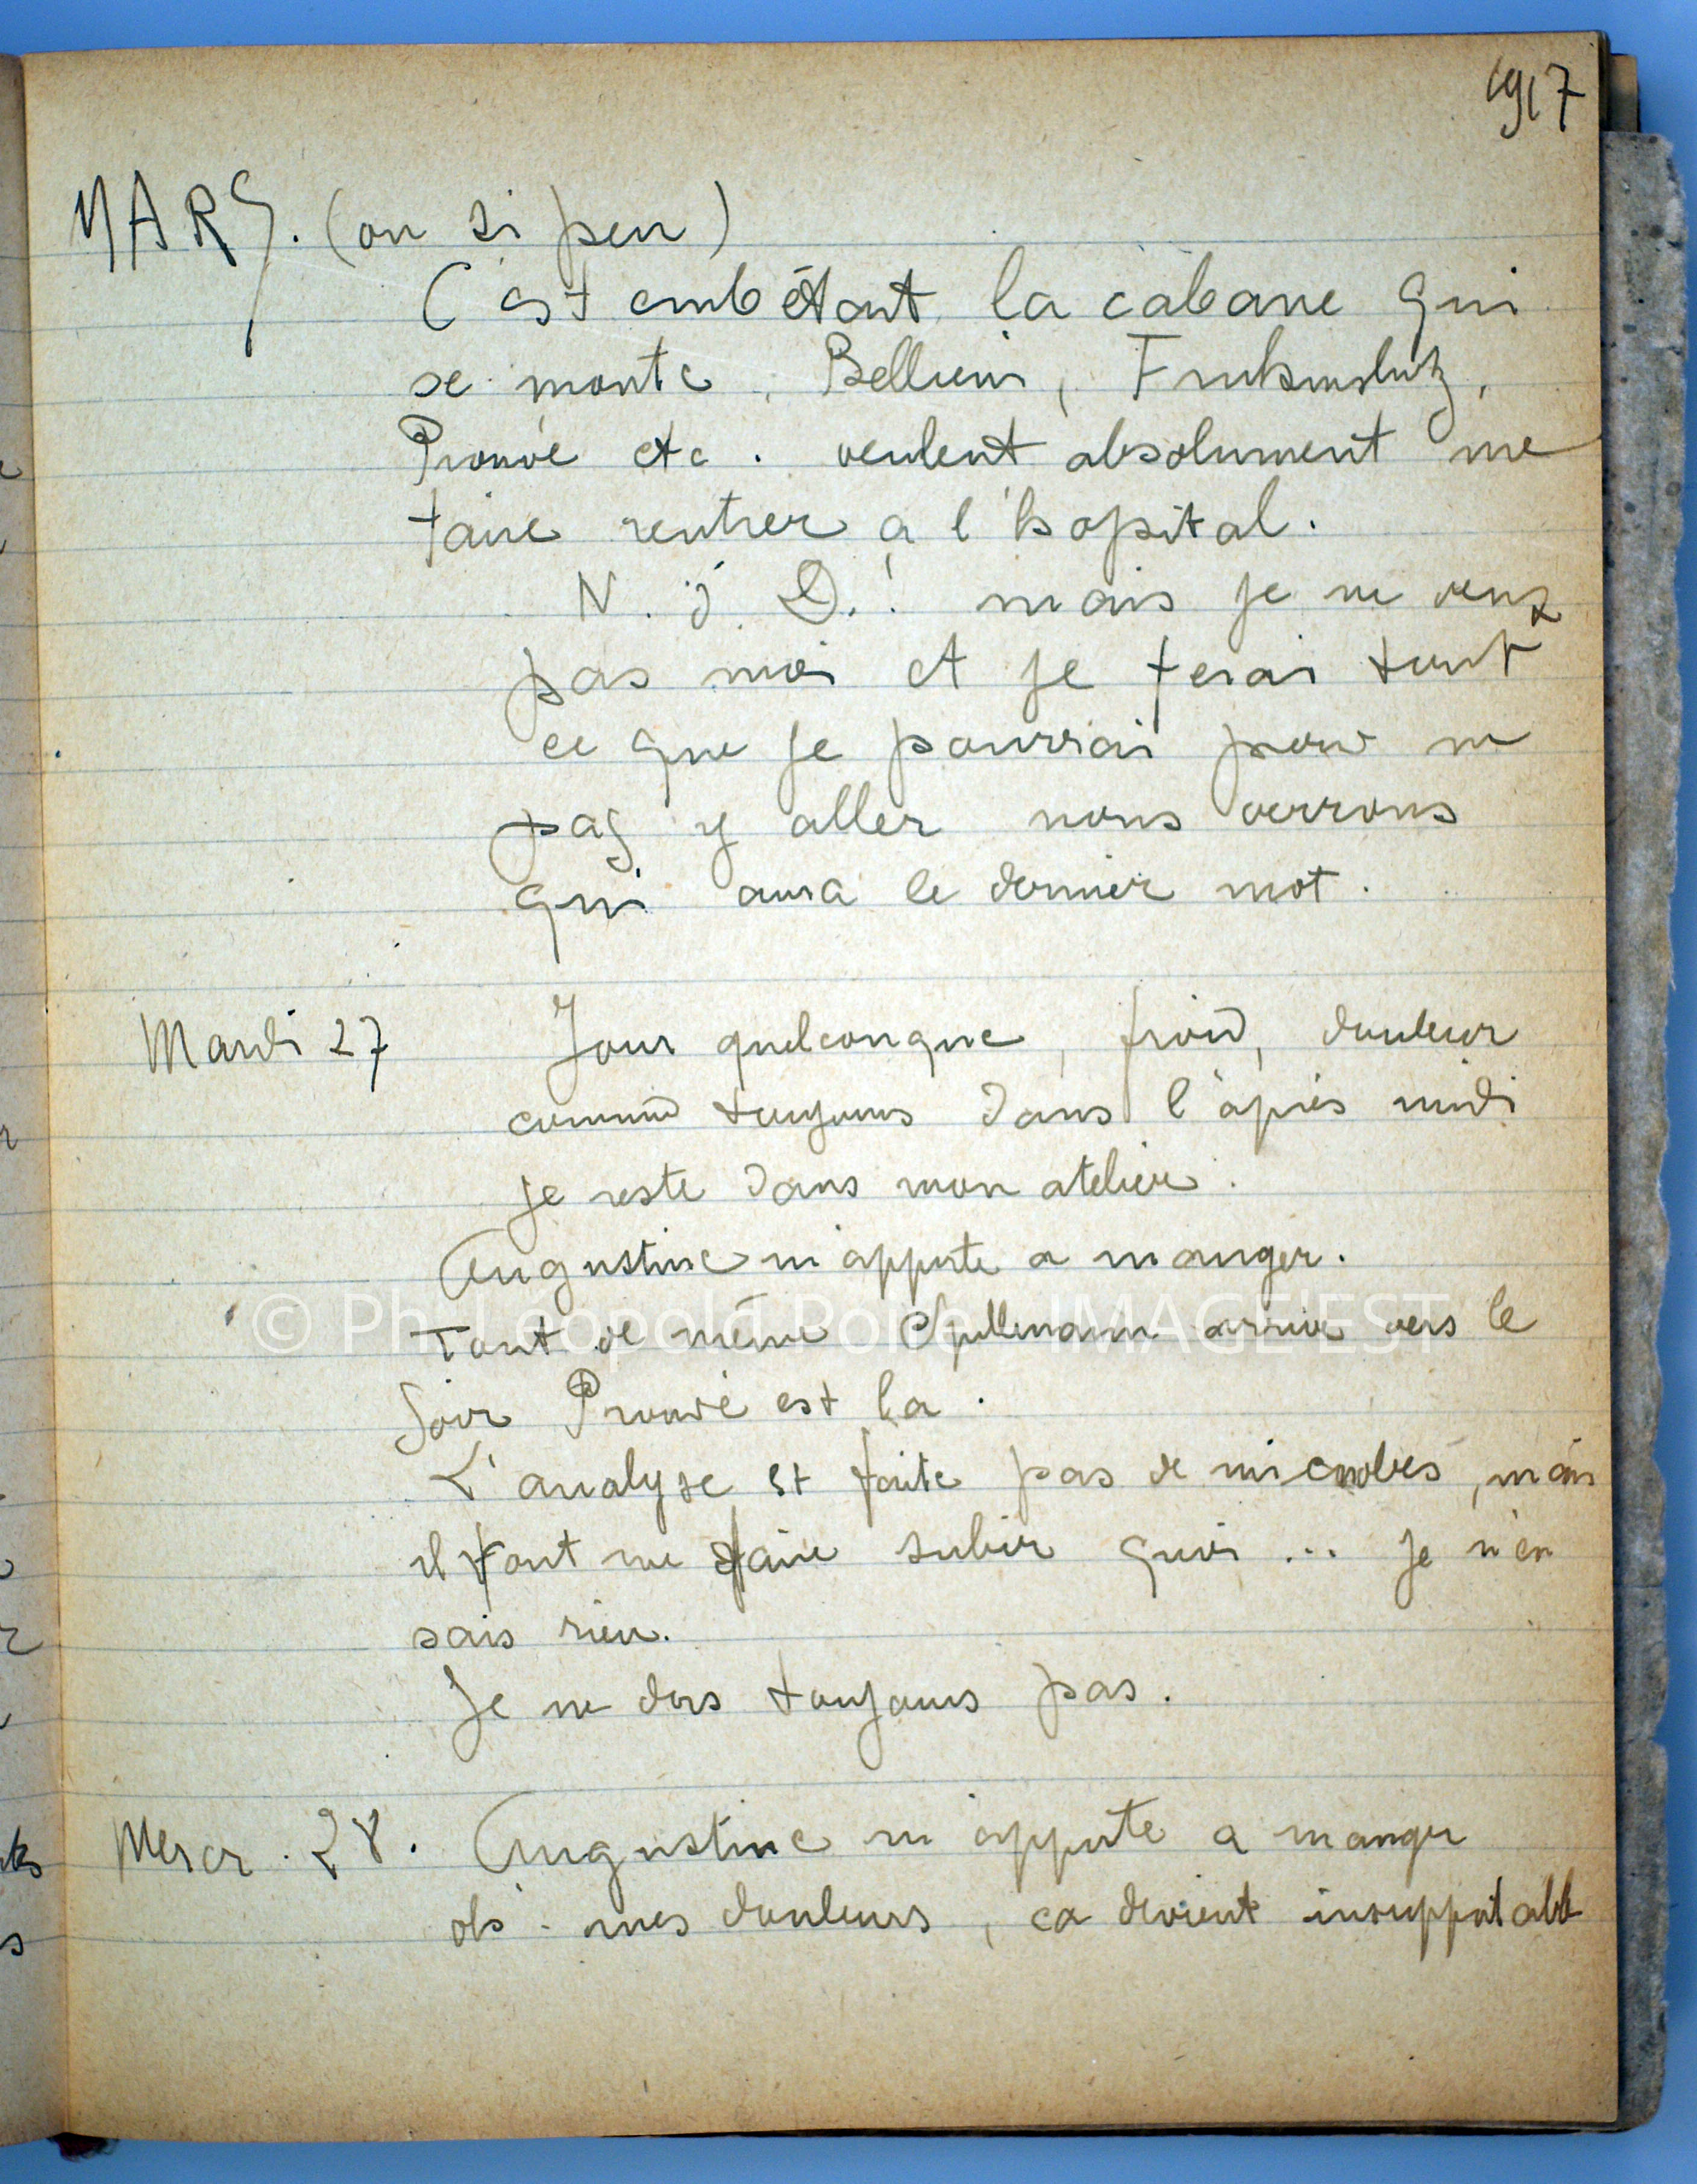 1917
MARS. (ou si peu)
C'est embêtant la cabane qui
se monte, Bellieni,
Prouvé etc. veulent absolument me
faire rentrer a l'hopital.
N. d. D.! mais je ne veux
pas moi et je ferai tout
ce que je pourrai pour ne
pas y aller nous verrons
qui aura le dernier mot.
Mardi 27 Jour quelconque, froid, douleur
comme toujours dans l'après midi
je reste dans mon atelier.
Augustine m'apporte a manger.
Tout de même Spillmann arrive vers le
soir Prouvé est la.
L'analyse est faite pas de microbes, mais
il faut me faire subir quoi ... je n'en
sais rien.
Je ne dors toujours pas.
Mercr. 28. Augustine m'apporte a manger
oh. mes douleurs, ca devient insupportable
© Ph. Léopold Poiré IMAGE'EST